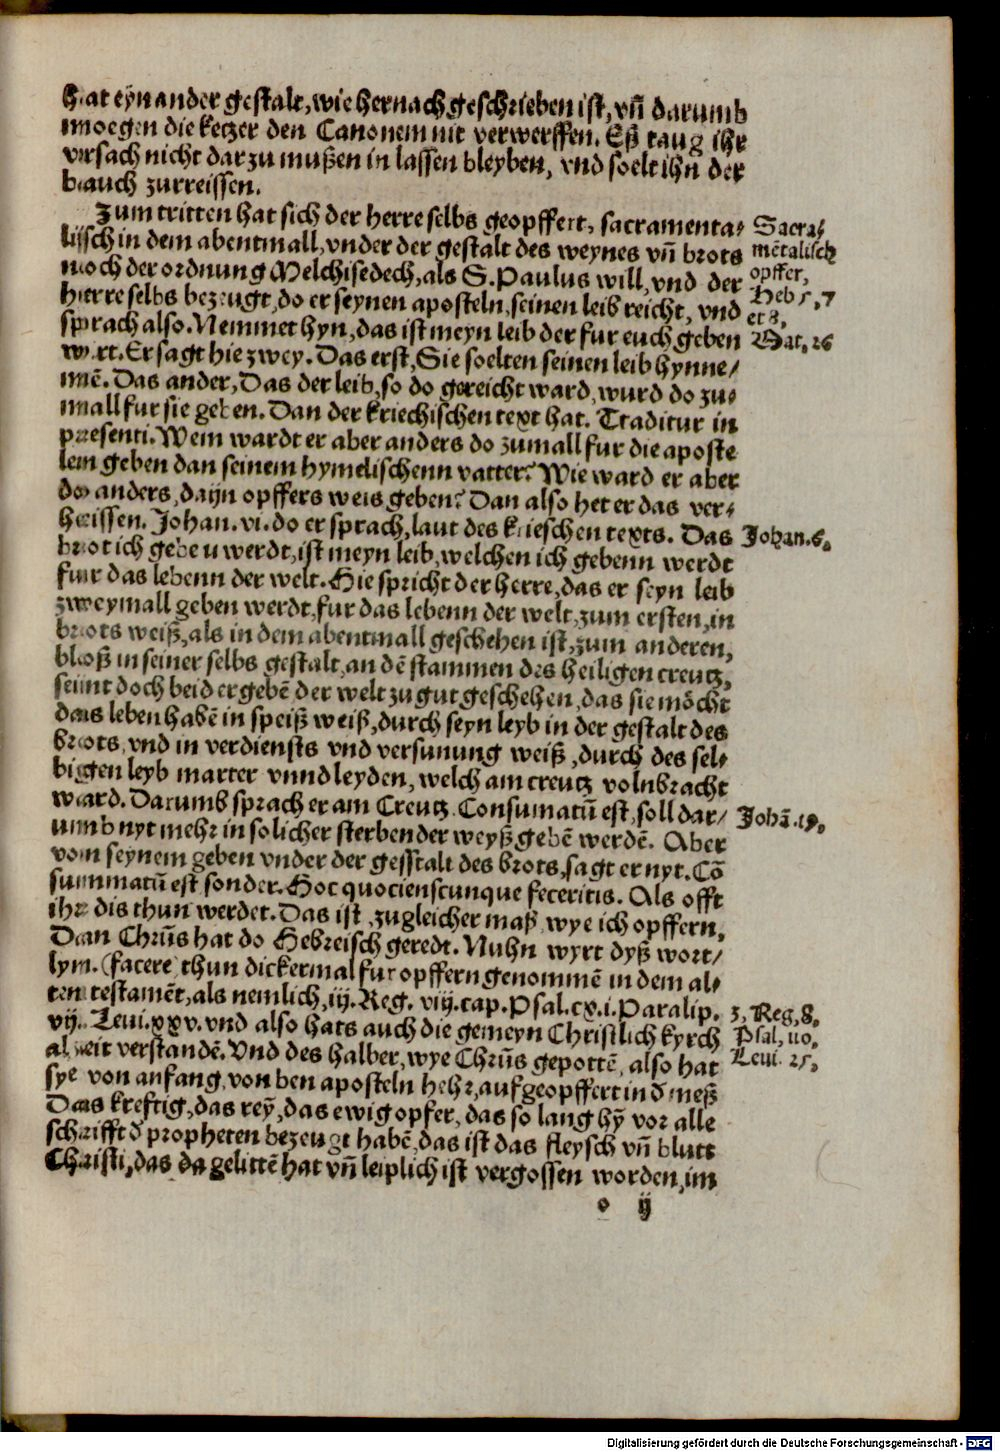 hat eyn ander gestalt, wie hernach geschrieben ist, vñ darumb
moegen die ketzer den Canonem nit verwerffen. Eß taug ihr
vrsach nicht dar zu mußen in lassen bleyben, vnd soelt ihn der
bauch zurreissen.
Zum tritten hat sich der herre selbs geopffert, sacramenta-
lisch in dem abentmall, vnder der gestalt des weynes vñ brots
noch der ordnung Melchisedech, als S. Paulus will, vnd der
herre selbs bezeugt, do er seynen aposteln, seinen leib reicht, vnd
sprach also. Nemmet hyn, das ist meyn leib der fur euch geben
wirt. Er sagt hie zwey. Das erst, Sie soelten seinen leib hynne/
mē. Das ander, Das der leib, so do gereicht ward, wurd do zu-
mall fur sie geben. Dan der kriechischen text hat. Traditur in
presenti. Wem wardt er aber anders do zumall fur die aposte
len geben dan seinem hymelischenn vatter? Wie ward er aber
do anders, dan yn opffers weis geben? Dan also het er das ver-
heissen. Johan. vi. do er sprach, laut des krieschen texts. Das
brot ich geben werdt, ist meyn leib, welchen ich gebenn werdt
fur das lebenn der welt. Hie spricht der herre, das er seyn leib
zweymall geben werdt, fur das lebenn der welt, zum ersten, in
brots weiß, als in dem abentmall geschehen ist, zum anderen,
bloß in seiner selbs gestalt, an dē stammen des heiligen creutz,
seint doch beid ergebē der welt zu gut geschehen, das sie mōcht
das leben habē in speiß weiß, durch seyn leyb in der gestalt des
brots, vnd in verdiensts vnd versunung weiß, durch des sel-
bigen leyb marter vnnd leyden, welch am creutz volnbracht
ward. Darumb sprach er am Creutz Consumatū est, soll dar/
umb nyt mehr in solicher sterbender weyß gebē werdē. Aber
vom seynem geben vnder der gesstalt des brots, sagt er nyt. Cō
summatū est sonder. Hoc quocienscunque feceritis. Als offt
ihr dis thun werdet. Das ist zugleicher maß wye ich opffern,
Dan Chrūs hat do Hebreisch geredt. Nuhn wyrt dyß wort/
lyn. (facere) thun dickermal fur opffern genommē in dem al-
ten testamēt, als nemlich, iij. Reg. viij. cap. Psal. cx. i. Paralip.
vij. Leui. xxv. vnd also hats auch die gemeyn Christlich kyrch
alzeit verstandē. Vnd des halber, wye Chrūs gepottē, also hat
sye von anfang, von ben aposteln hehr, aufgeopffert in đ meß
Das kreftig, das reȳ, das ewig opfer, das so lang hȳ vor alle
schrifft đ propheten bezeugt habē, das ist das fleysch vñ blutt
Christi, das da gelittē hat vñ leiplich ist vergossen worden, im
o ij
Sacra-
mētalisch
opffer,
Heb 5, 7
et 8,
Mat, 26
Johan. 6,
Johā. 19,
3, Reg, 8,
Psal, 110,
Leui. 25,
Digitalisierung gefördert durch die Deutsche Forschungsgemeinschaft - DFG